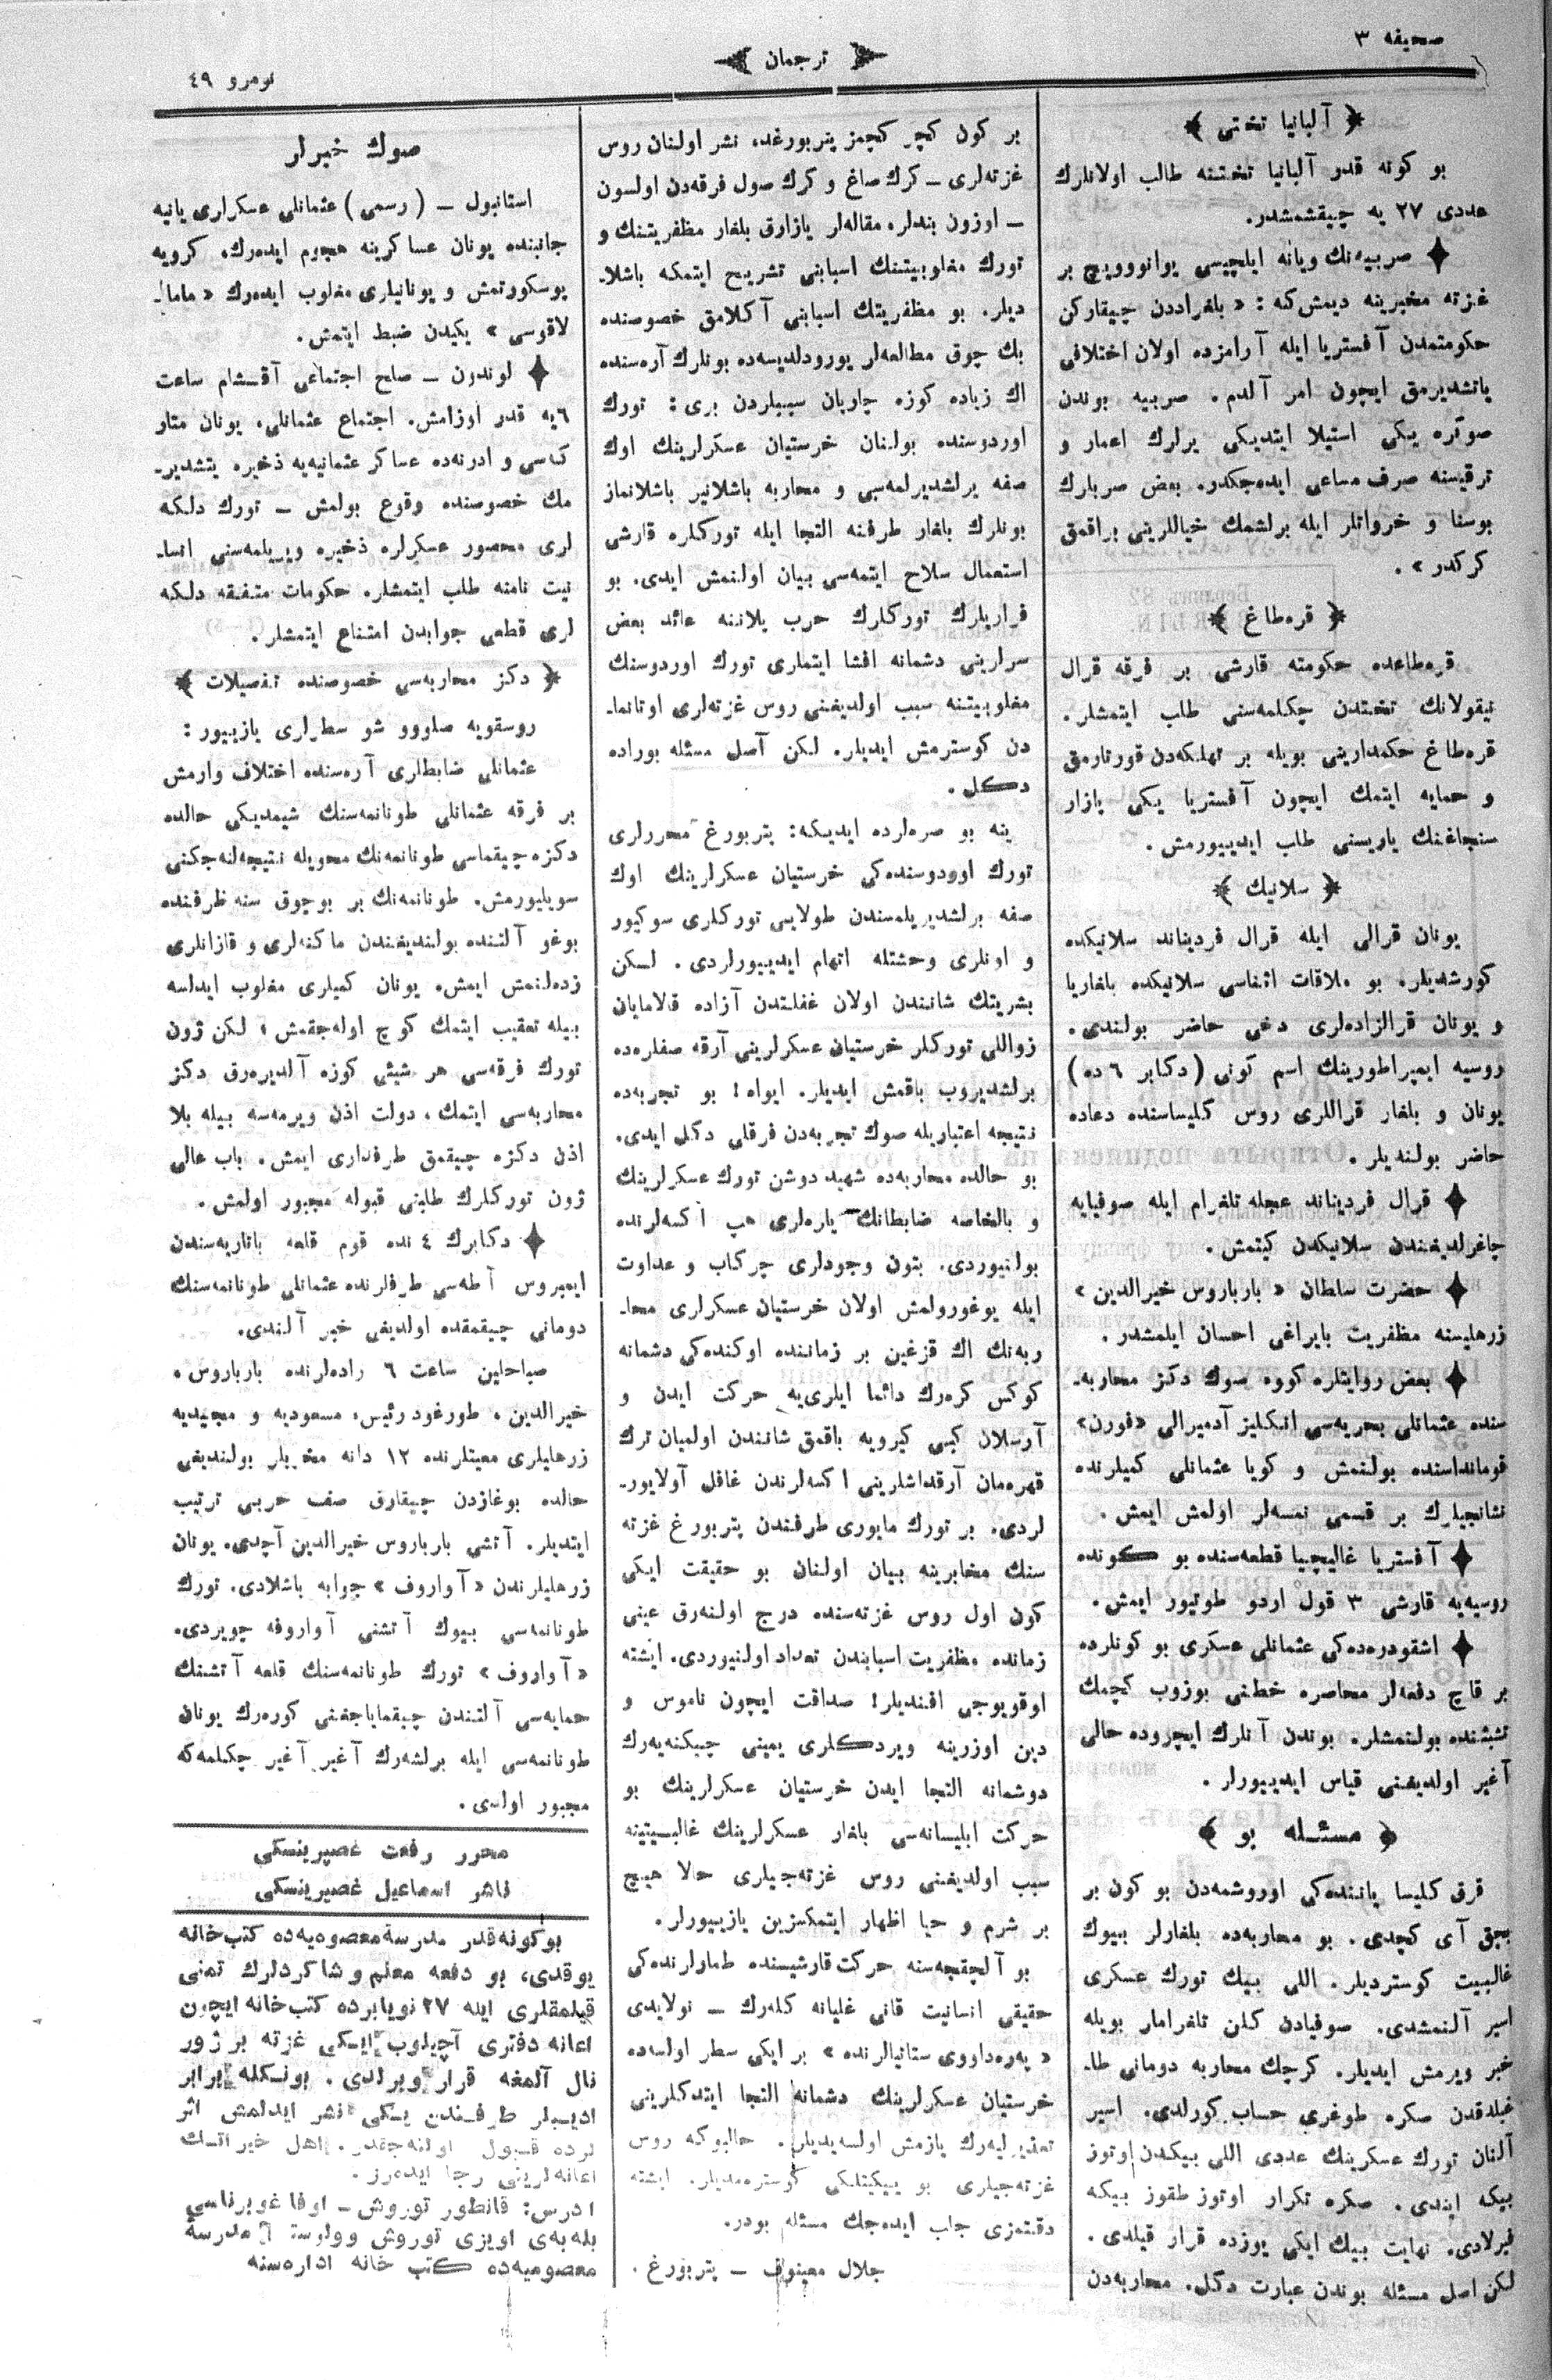 صحیفه ٣
ترجمان
نومرو ٤٩
آلبانیا تختی
بو كونه قدر آلبانیا تختنه طالب اولانلرك
عددی ٢٧ یه چیقشمشدر.
صربیه‌نك ویانه ایلچیسی یوانوویچ بر
غزته مخبرینه دیمش‌كه: « بلغراددن چیقاركن
حكومتمدن آفستریا ایله آرامزده اولان اختلافی
یاتشدیرمق ایچون امر آلدم. صربیه بوندن
صوكره یكی استیلا ایتدیكی یرلرك اعمار و
ترقیسنه صرف مساعی ایده‌جكدر. بعض صربلرك
بوسنا و خرواتلر ایله برلشمك خیاللرینی براقمق
كركدر ».
قره‌طاغ
قره‌طاغده حكومته قارشی بر فرقه قرال
نیقولانك تختدن چكلمه‌سنی طلب ایتمشلر.
قره‌طاغ حكمدارینی بویله بر تهلكه‌دن قورتارمق
و حمایه ایتمك ایچون آفستریا یكی پازار
سنجاغنك یاریسنی طلب ایدییورمش.
سلانیك
یونان قرالی ایله قرال فردیناند سلانیكده
كورشدیلر. بو ملاقات اثناسی سلانیكده بلغاریا
و یونان قرالزاده‌لری دخی حاضر بولندی.
روسیه ایمپراطورینك اسم كونی (دكابر ٦ ده)
یونان و بلغار قراللری روس كلیساسنده دعاده
حاضر بولندیلر.
قرال فردیناند عجله تلغرام ایله صوفیایه
چاغرلدیغندن سلانیكدن كیتمش.
حضرت سلطان « بارباروس خیرالدین »
زرهلیسنه مظفریت بایراغی احسان ایلمشدر.
بعض روایتلره كوره صوك دكز محاربه‌ـ
سنده عثمانلی بحریه‌سی انكلیز آدمیرالی «فورن»
قومانداسنده بولنمش و كویا عثمانلی كمیلرنده
نشانجیلرك بر قسمی نمسه‌لر اولمش ایمش.
آفستریا غالیچیا قطعه‌سنده بو كونده
روسیه‌یه قارشی ٣ قول اردو طوتیور ایمش.
اشقودره‌ده‌كی عثمانلی عسكری بو كونلرده
بر قاچ دفعه‌لر محاصره خطنی بوزوب كچمك
تشبثنده بولنمشلر. بوندن آنلرك ایچروده حالی
آغیر اولدیغنی قیاس ایدییورلر.
مسئله بو
قرق كلیسا یاننده‌كی اوروشمه‌دن بو كون بر
بچق آی كچدی. بو محاربه‌ده بلغارلر بیوك
غالبیت كوستردیلر. اللی بیك تورك عسكری
اسیر آلنمشدی. صوفیادن كلن تلغرامار بویله
خبر ویرمش ایدیلر. كرچك محاربه دومانی طاـ
غیلدقدن صكره طوغری حساب كورلدی. اسیر
آلنان تورك عسكرینك عددی اللی بیكدن اوتوز
بیكه ایندی. صكره تكرار اوتوز طقوز بیكه
فیرلادی. نهایت بیك ایكی یوزده قرار قیلدی.
لكن اصل مسئله بوندن عبارت دكل. محاربه‌دن
بر كون كچر كچمز پتربورغده نشر اولنان روس
غزته‌لری ـ كرك صاغ و كرك صول فرقه‌دن اولسون
ـ اوزون بندلر، مقاله‌لر یازارق بلغار مظفریتنك و
تورك مغلوبیتنك اسبابنی تشریح ایتمكه باشلاـ
دیلر. بو مظفریتك اسبابنی آكلامق خصوصنده
پك چوق مطالعه‌لر یورودلدیسه‌ده بونلرك آره‌سنده
اك زیاده كوزه چارپان سببلردن بری: تورك
اوردوسنده بولنان خرستیان عسكرلرینك اوك
صفه یرلشدیرلمه‌سی و محاربه باشلانیر باشلانماز
بونلرك بلغار طرفنه التجا ایله توركلره قارشی
استعمال سلاح ایتمه‌سی بیان اولنمش ایدی. بو
فراریلرك توركلرك حرب پلاننه عائد بعض
سرلرینی دشمانه افشا ایتملری تورك اوردوسنك
مغلوبیتنه سبب اولدیغنی روس غزته‌لری اوتانماـ
دن كوسترمش ایدیلر. لكن آصل مسئله بوراده
دكل.
ینه بو صره‌لرده ایدیكه: پتربورغ محررلری
تورك اوردوسنده‌كی خرستیان عسكرلرینك اوك
صفه برلشدیریلمسندن طولایی توركلری سوكیور
و اونلری وحشتله اتهام ایدییورلردی. لسكن
بشریتك شانندن اولان غفلتدن آزاده قالامایان
زواللی توركلر خرستیان عسكرلرینی آرقه صفلره‌ده
یرلشدیروب باقمش ایدیلر. ایواه! بو تجربه‌ده
نتیجه اعتباریله صوك تجربه‌دن فرقلی دكل ایدی.
بو حالده محاربه‌ده شهید دوشن تورك عسكرلرینك
و بالخاصه ضابطانك یاره‌لری هپ اكسه‌لرنده
بولنیوردی. بتون وجودلری چركاب و عداوت
ایله یوغورولمش اولان خرستیان عسكرلری محاـ
ربه‌نك اك قزغین بر زماننده اوكنده‌كی دشمانه
كوكس كره‌رك دائما ایلری‌یه حركت ایدن و
آرسلان كبی كیرویه باقمق شانندن اولمیان ترك
قهره‌مان آرقداشلرینی اكسه‌لرندن غافل آولایورـ
لردی. بر تورك مایوری طرفندن پتربورغ غزته
سنك مخابرینه بیان اولنان بو حقیقت ایكی
كون اول روس غزته‌سنده درج اولنه‌رق عینی
زمانده مظفریت اسبابندن تعداد اولنیوردی. ایشته
اوقویوجی افندیلر! صداقت ایچون ناموس و
دین اوزرینه ویردكلری یمینی چیكنه‌یه‌رك
دوشمانه التجا ایدن خرستیان عسكرلرینك بو
حركت ابلیسانه‌سی بلغار عسكرلرینك غالبیتینه
سبب اولدیغنی روس غزته‌جیلری حالا هیچ
بر شرم و حیا اظهار ایتمكسزین یازییورلر.
بو آلچقجه‌سنه حركت قارشیسنده طمارلرنده‌كی
حقیقی انسانیت قانی غلیانه كله‌رك ـ نولایدی
« پره‌داووی ستاتیالرنده » بر ایكی سطر اولسه‌ده
خرستیان عسكرلرینك دشمانه التجا ایتدكلرینی
تعذیرلیه‌رك یازمش اولسه‌یدیلر. حالبوكه روس
غزته‌جیلری بو ییكیتلكی كوستره‌مدیلر. ایشته
دقتمزی جلب ایده‌جك مسئله بودر.
جلال معینوف ـ پتربورغ.
صوك خبرلر
استانبول ـ (رسمی) عثمانلی عسكرلری یانیه
جانبنده یونان عساكرینه هجوم ایده‌رك، كرویه
پوسكورتمش و یونانیلری مغلوب ایده‌رك « ماماـ
لاقوسی » یكیدن ضبط ایتمش.
لوندون ـ صلح اجتماعی آقشام ساعت
٦یه قدر اوزامش. اجتماع عثمانلی، یونان متار
كه‌سی و ادرنه‌ده عساكر عثمانیه‌یه ذخیره یتشدیرـ
مك خصوصنده وقوع بولمش ـ تورك دلكه
لری محصور عسكرلره ذخیره ویریلمه‌سنی انساـ
نیت نامنه طلب ایتمشلر. حكومات متفقه دلكه
لری قطعی جوابدن امتناع ایتمشلر.
دكز محاربه‌سی خصوصنده تفصیلات
روسقویه صلووو شو سطرلری یازییور:
عثمانلی ضابطلری آره‌سنده اختلاف وارمش
بر فرقه عثمانلی طونانمه‌سنك شیمدیكی حالده
دكزه چیقماسی طونانمه‌نك محویله نتیجه‌لنه‌جكنی
سویلیورمش. طونانمه‌نك بر بوچوق سنه ظرفنده
بوغو آلتنده بولندیغندن ماكنه‌لری و قازانلری
زده‌لنمش ایمش. یونان كمیلری مغلوب ایدلسه
بیله تعقیب ایتمك كوچ اوله‌جقمش، لكن ژون
تورك فرقه‌سی هر شیئی كوزه آلدیره‌رق دكز
محاربه‌سی ایتمك، دولت اذن ویرمه‌سه بیله بلا
اذن دكزه چیقمق طرفداری ایمش. باب عالی
ژون توركلرك طلبنی قبوله مجبور اولمش.
دكابرك ٤ نده قوم قلعه باتاریه‌سندن
ایمبروس آطه‌سی طرفلرنده عثمانلی طونانمه‌سنك
دومانی چیقمقده اولدیغی خبر آلندی.
صباحلین ساعت ٦ راده‌لرنده بارباروس،
خیرالدین، طورغود رئیس، مسعودیه و مجیدیه
زرهلیلری معیتلرنده ١٢ دانه مخربلر بولندیغی
حالده بوغازدن چیقارق صف حربی ترتیب
ایتدیلر. آتشی بارباروس خیرالدین آچدی. یونان
زرهلیلرندن « آواروف » جوابه باشلادی. تورك
طونانمه‌سی بیوك آتشنی آواروفه چویردی.
« آواروف » تورك طونانمه‌سنك قلعه آتشنك
حمایه‌سی آلتندن چیقمایاجغنی كوره‌رك یونان
طونانمه‌سی ایله برلشه‌رك آغیر آغیر چكلمه‌كه
مجبور اولدی.
محرر رفعت غصپرینسكی
ناشر اسماعیل غصپرینسكی
بو كونه قدر مدرسهٔ معصومیه‌ده كتب‌خانه
یوقدی، بو دفعه معلم و شاكردلرك تمنی
قیلمقلری ایله ٢٧ نویابرده كتب‌خانه ایچون
اعانه دفتری آچیلوب ایكی غزته بر ژور
نال آلمغه قرار ویرلدی. بونكله برابر
ادیبلر طرفندن یكی نشر ایدلمش اثر
لرده قبول اولنه‌جقدر. اهل خیراتك
اعانه‌لرینی رجا ایده‌رز.
ادرس: قانطور توروش ـ اوفا غوبرناسی
بله‌به‌ی اویزی توروش وولوست مدرسهٔ
معصومیه‌ده كتب خانه اداره‌سنه